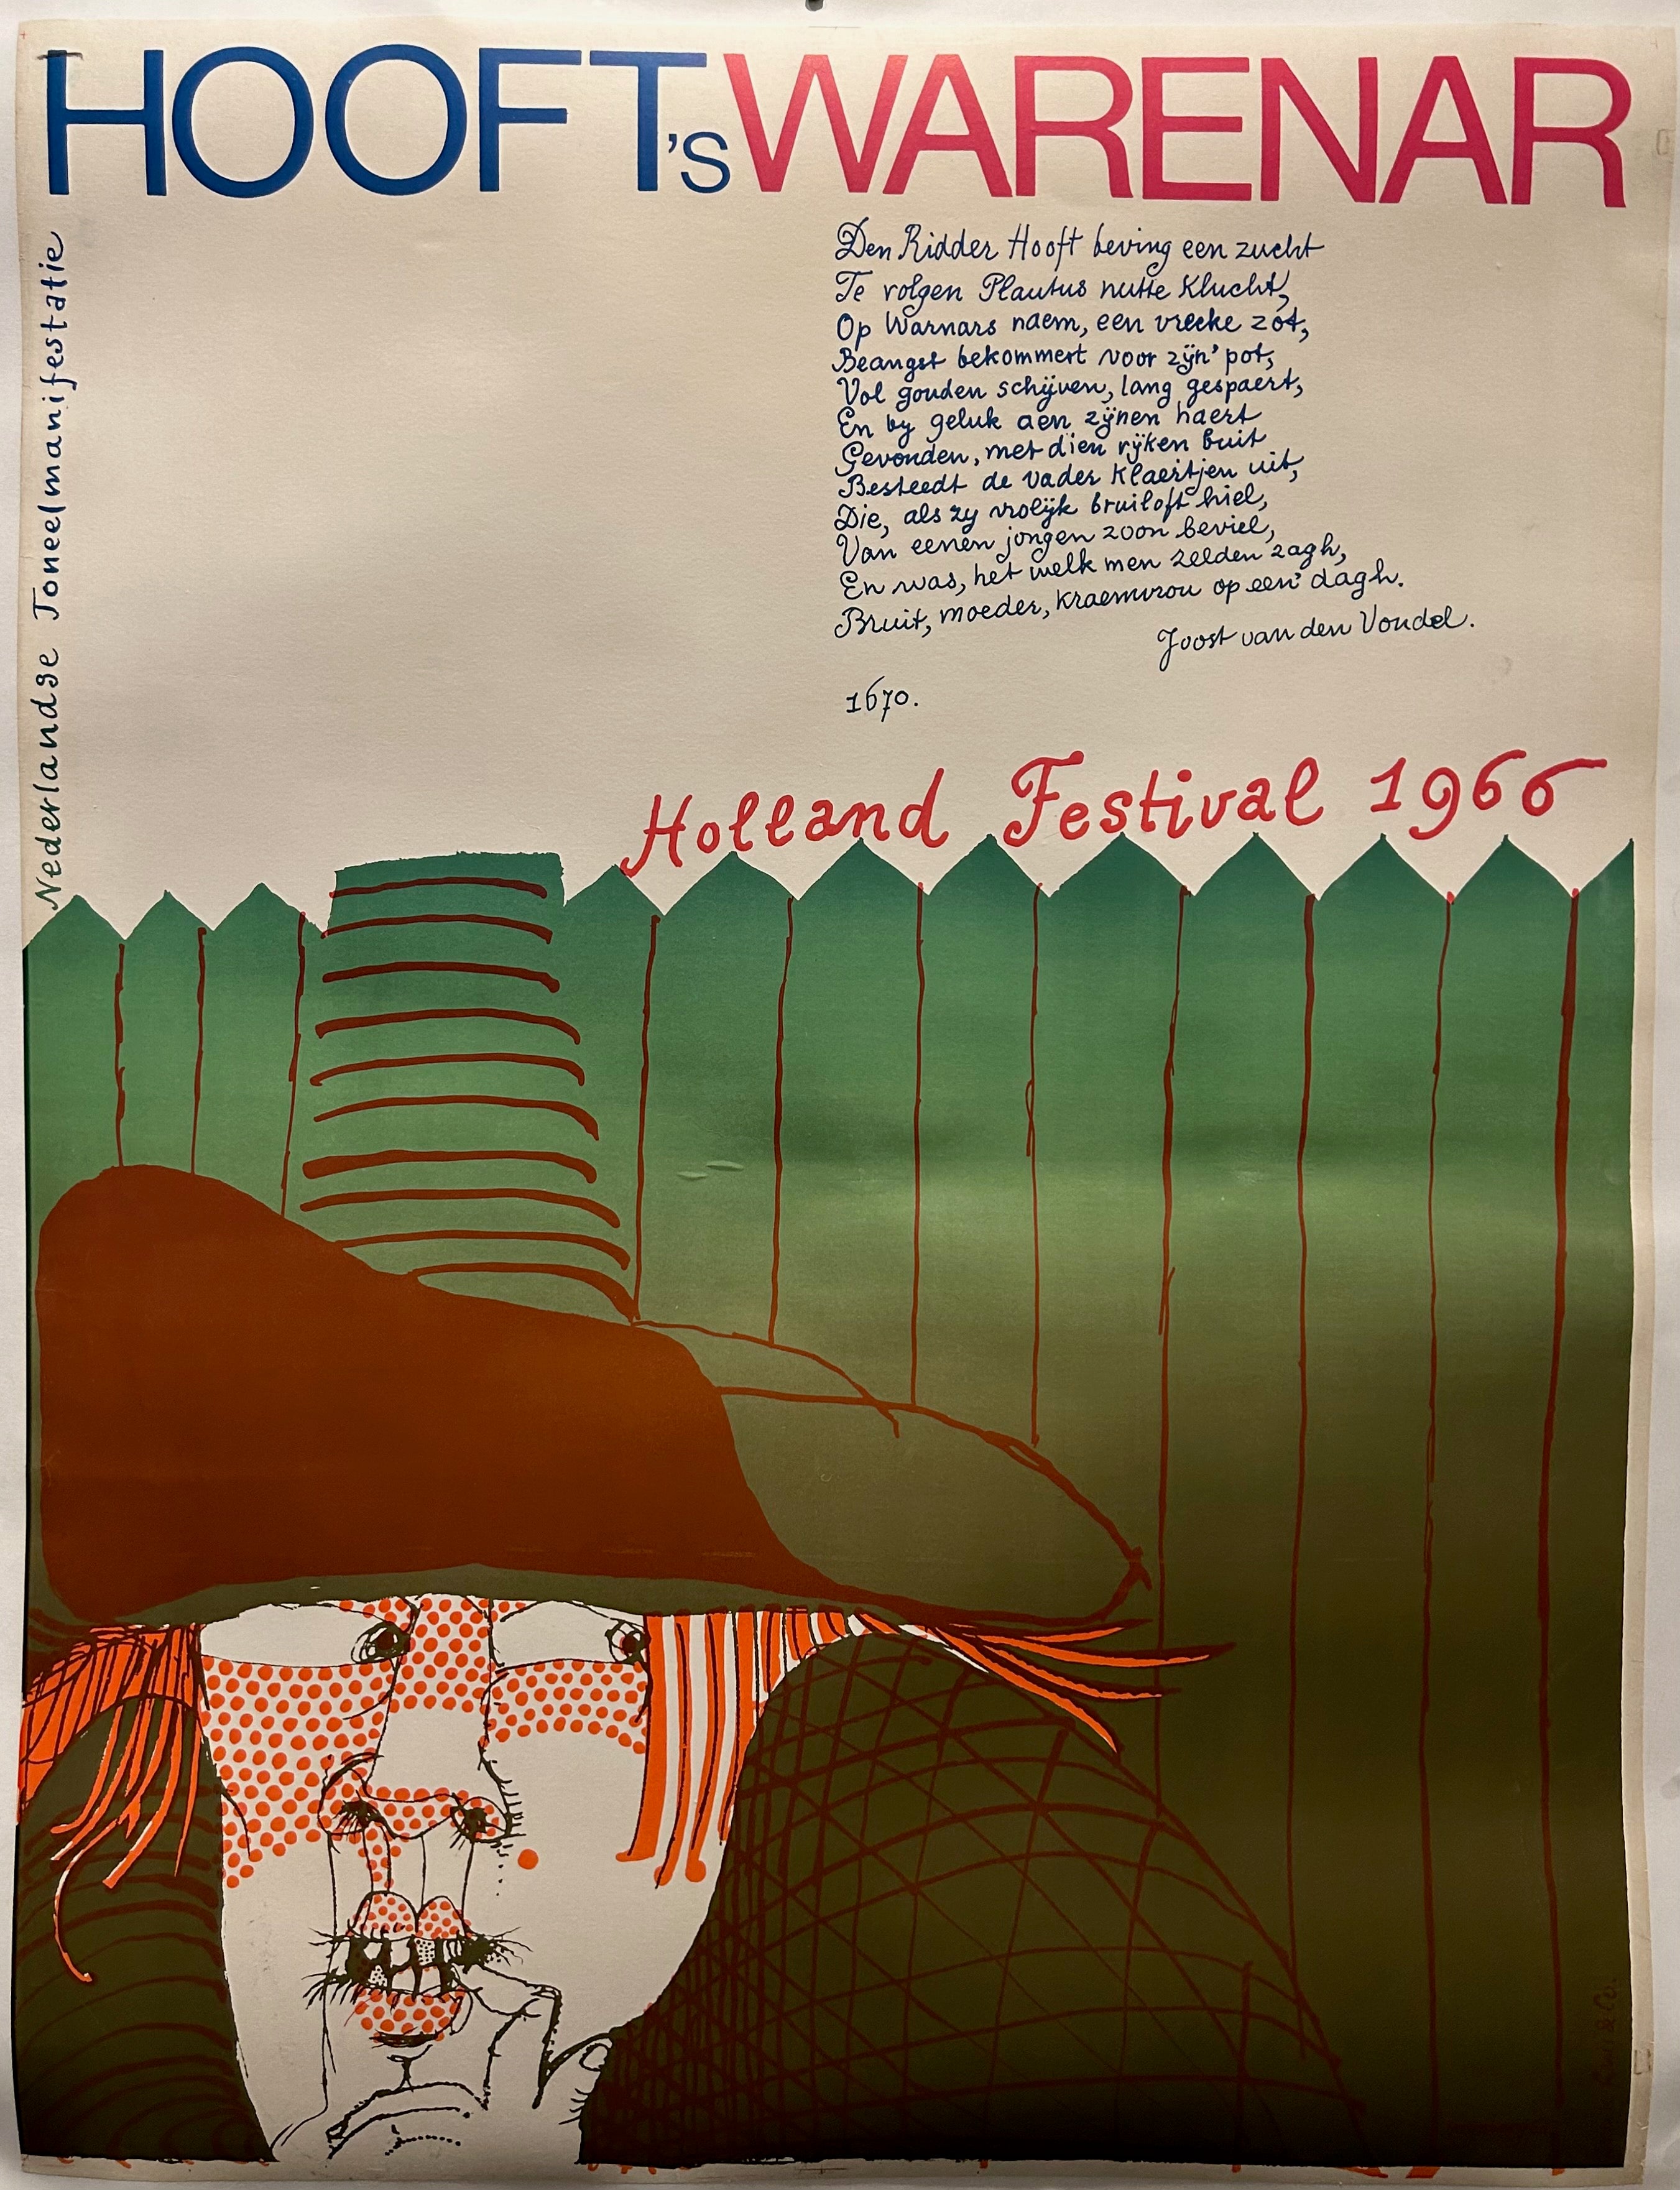 HOOFT'S WARENAR
Den Ridder Hooft beving een zucht
Te volgen Plautus nutte Klucht,
Op Warnars naem, een vrecke zot,
Beangst bekommert voor zijn' pot,
Vol gouden schijven, lang gespaert,
En by geluk aen zijnen haert
Gevonden, met dien rijken buit
Besteedt de vader Klaertjen uit,
Die, als zy vrolijk bruiloft hiel,
Van eenen jongen zoon beviel,
En was, het welk men zelden zagh,
Bruit, moeder, kraemvrou op een' dagh.
Joost van den Vondel.
1670.
Nederlandse Toneelmanifestatie
Holland Festival 1966